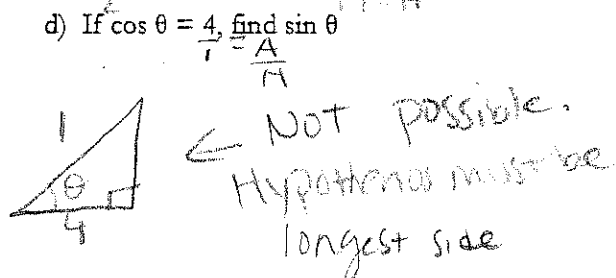 d) If cos θ = 4, find sin θ
1 = A
H
1
θ
4
< Not possible.
Hypothenos must be
longest side